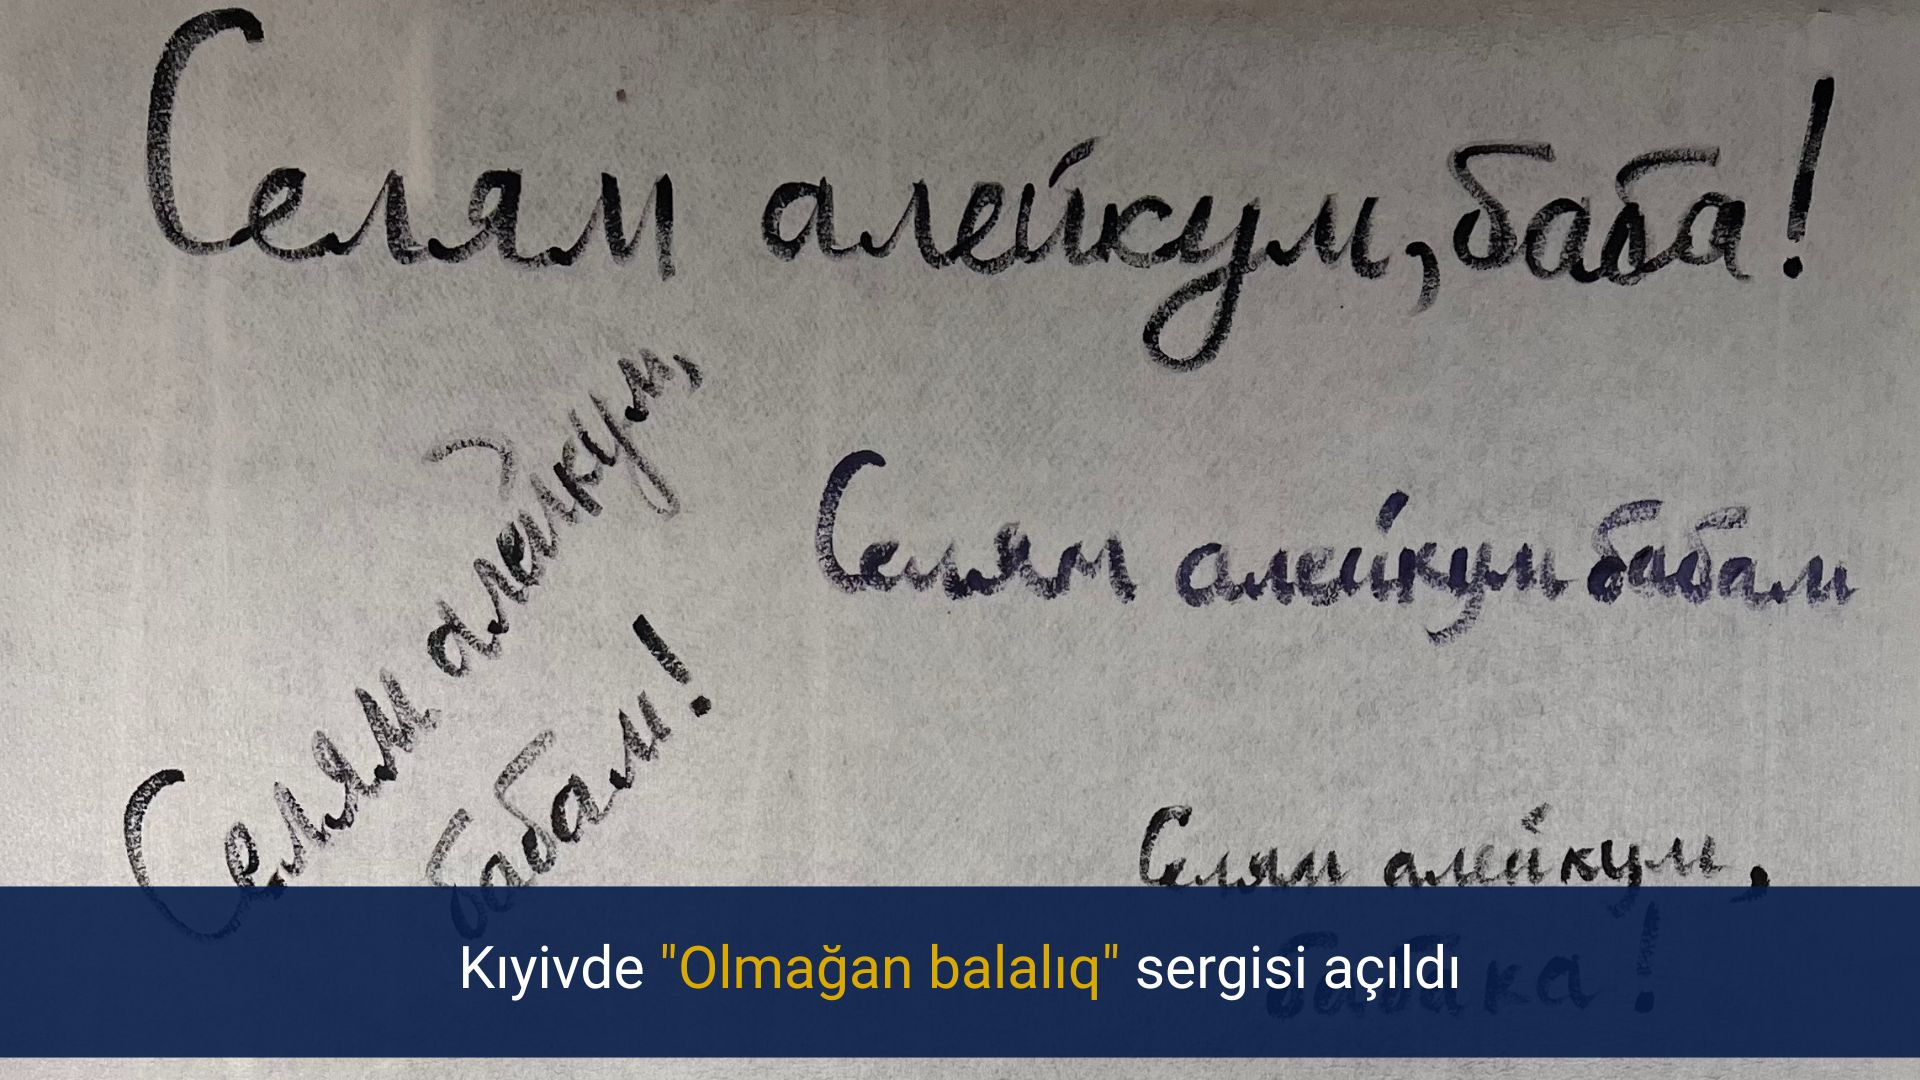 Селям алейкум, баба!
Селям алейкум,
бабам!
Селям алейкум бабам
Селям алейкум,
бабака!
Kıyivde "Olmağan balalıq" sergisi açıldı